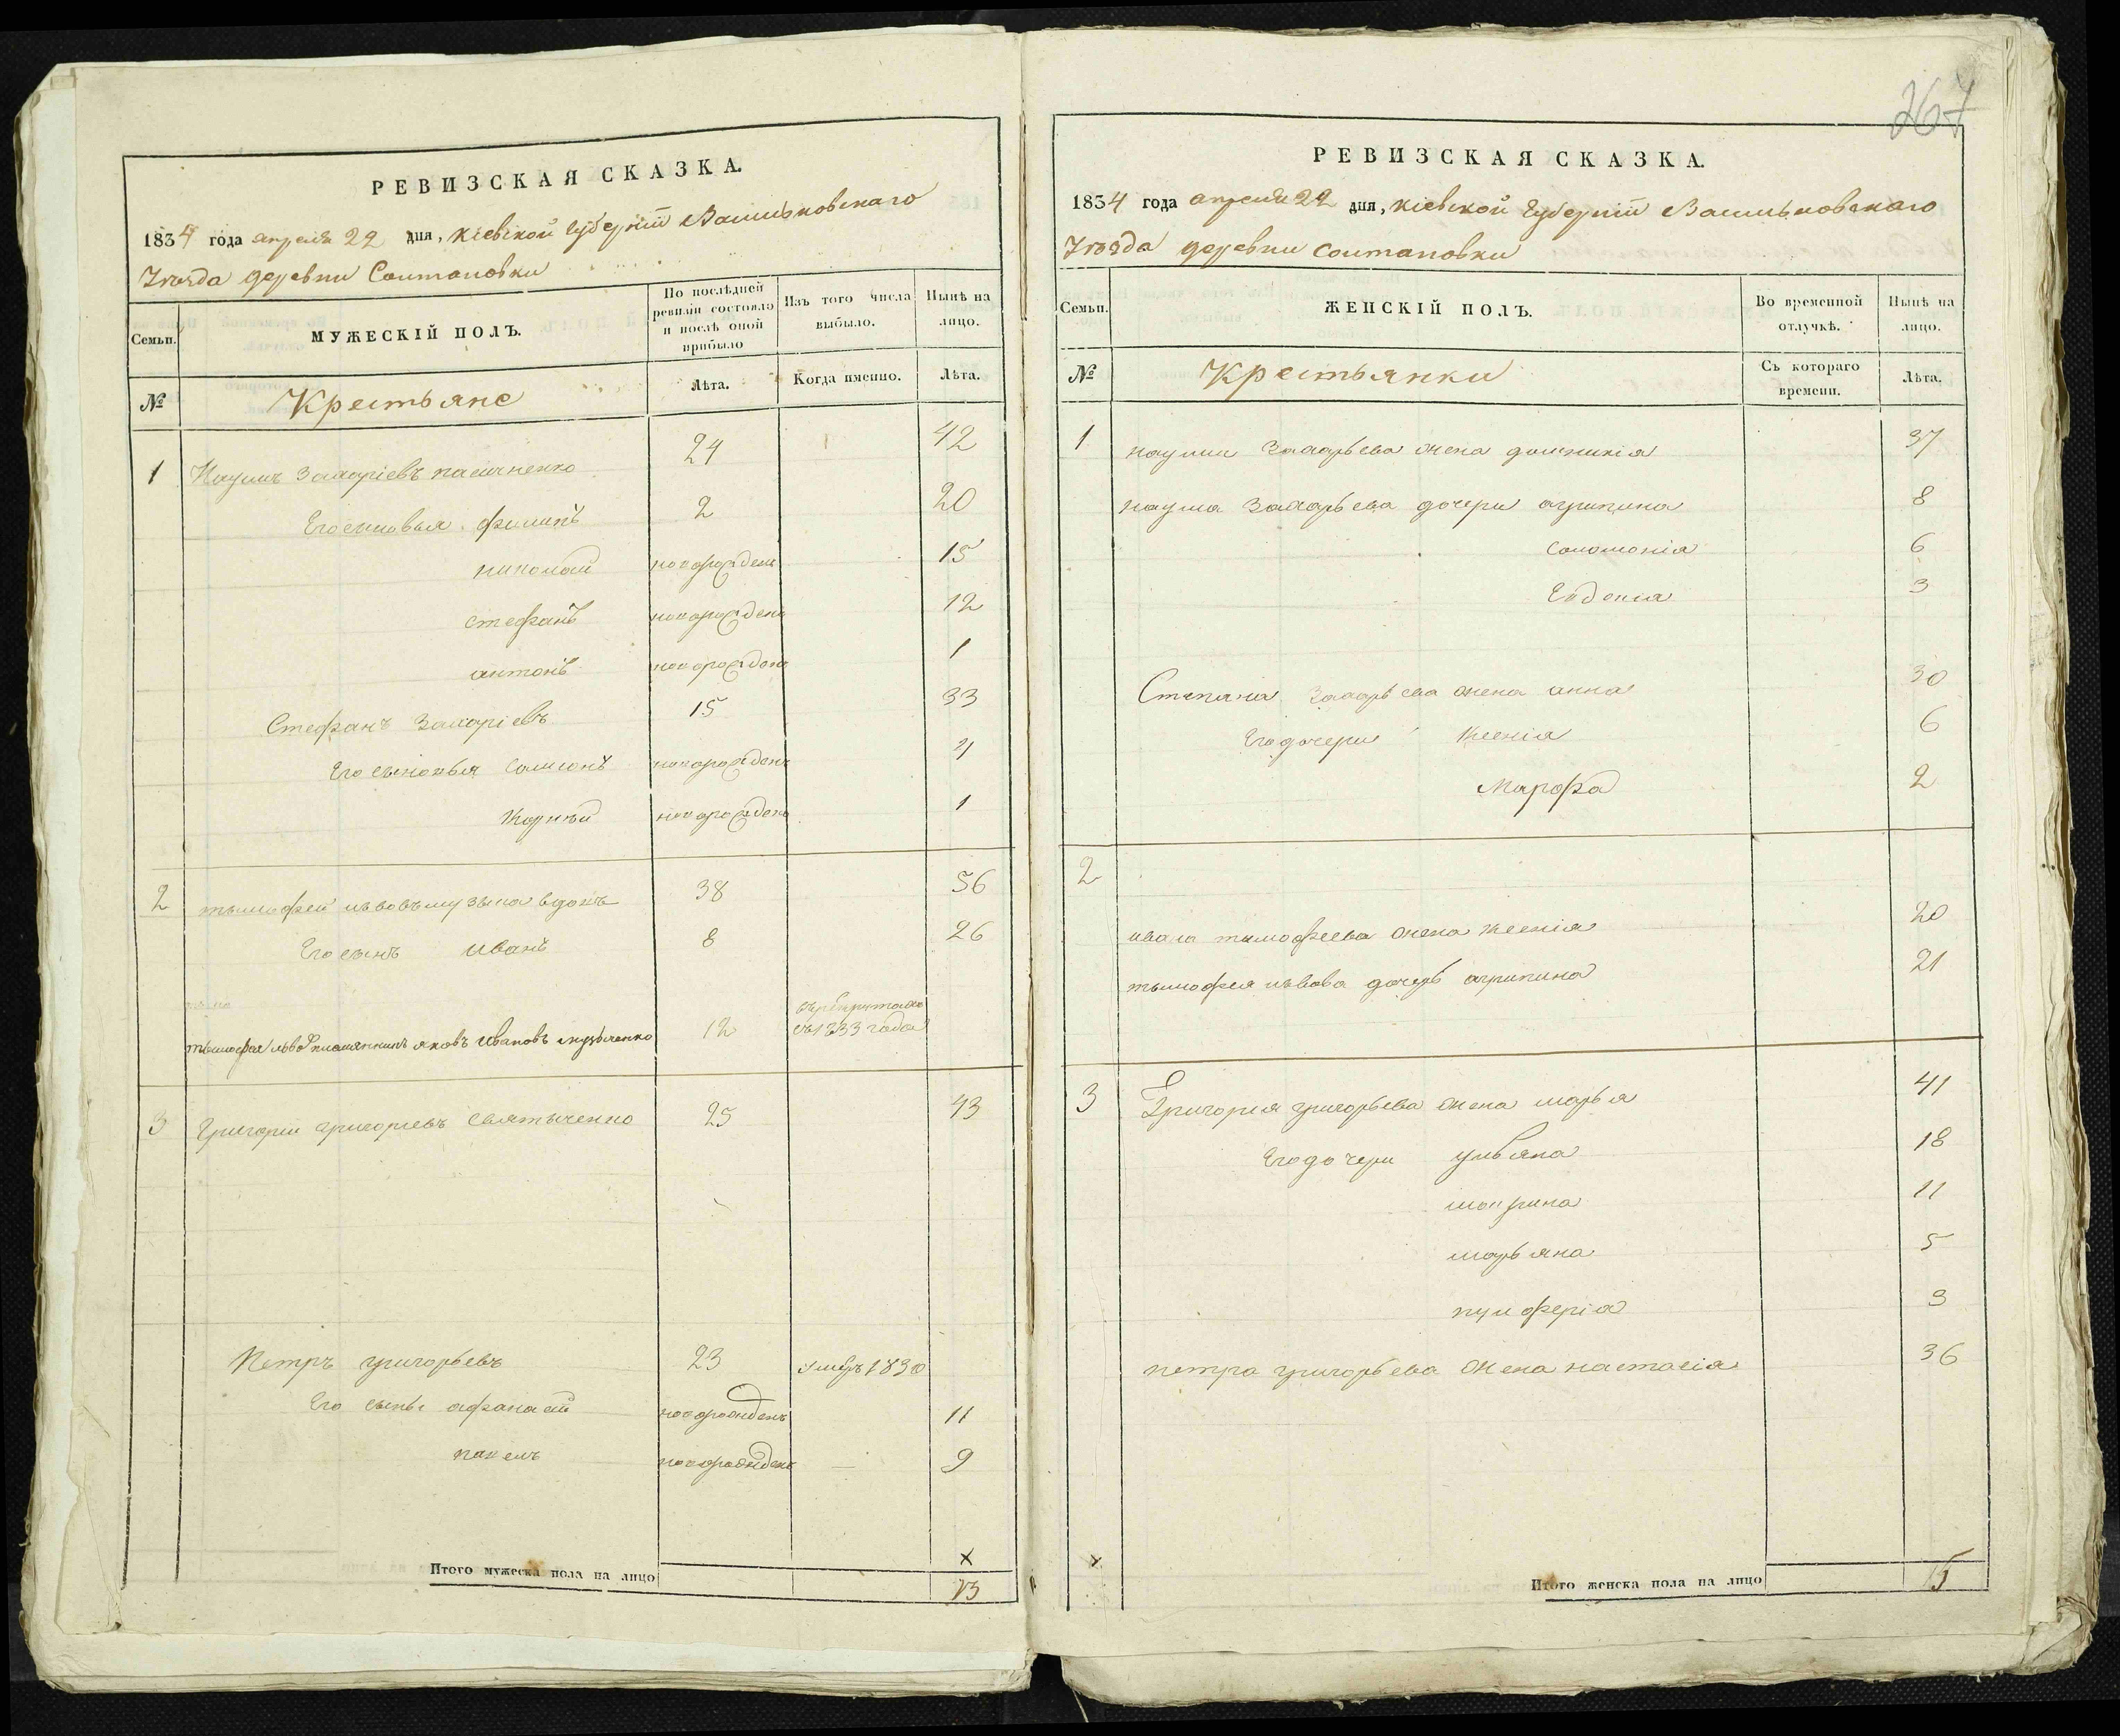 РЕВИЗСКАЯ СКАЗКА.
1834 года апреля 22 дня, Кіевской Губерніи Васильковскаго
Уѣзда деревни Солтановки
Семьи.
МУЖЕСКІЙ ПОЛЪ.
По послѣдней ревизіи состояло и послѣ оной прибыло
Изъ того числа выбыло.
Нынѣ на лицо.
№
Крестьяне
Лѣта.
Когда именно.
Лѣта.
1 Наумъ Захаріевъ 24 42
Его сыновья филипъ 2 20
николай новорожденъ 15
стефанъ новорожденъ 12
антонъ новорожденъ 1
Стефанъ Захаріевъ 15 33
Его сыновья самсонъ новорожденъ 4
Корнѣй новорожденъ 1
2 тымофей львовъ музыка вдовъ 38 56
Его сынъ иванъ 8 26
тымофея львова племянникъ яковъ Ивановъ музыченко 12
въ рекрутахъ
съ 1833 года
3 Григорій григоріевъ Святыченко 25 43
Петръ григорьевъ 23 умеръ 1830
Его сыны афанасій новорожденъ 11
павелъ новорожденъ — 9
Итого мужеска пола на лицо
х
13
267
РЕВИЗСКАЯ СКАЗКА.
1834 года апреля 22 дня, Кіевской Губерніи Васильковскаго
Уѣзда деревни Солтановки
Семьи.
ЖЕНСКІЙ ПОЛЪ.
Во временной отлучкѣ.
Нынѣ на лицо.
№
Крестьянки
Съ котораго времени.
Лѣта.
1 наума Захарьева жена домникія 37
наума Захарьева дочери агрипина 8
Соломонія 6
Евдокія 3
Степана Захарьева жена анна 30
Его дочери Ксенія 6
Марфа 2
2
ивана тимофеева жена Ксенія 20
тымофея львова дочерь агрипина 21
3 Григорія григорьева жена марья 41
Его дочери ульяна 18
мокрина 11
марьяна 5
пулферія 3
петра григорьева жена настасія 36
х
Итого женска пола на лицо
15